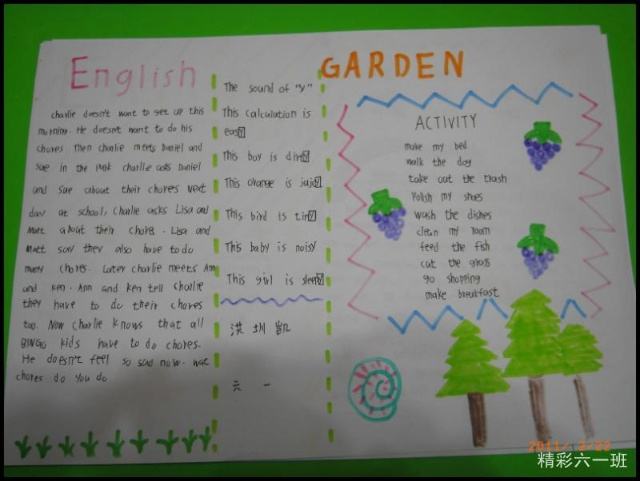 English
charlie doesn't want to get up this
morning. He doesn't want to do his
chores then charlie meets Daniel and
sue in the park charlie asks Daniel
and sue about their chores Next
day at school, charlie asks Lisa and
Matt about their chores. Lisa and
Matt say they also have to do
many chores. Later charlie meets Ann
and Ken. Ann and Ken tell charlie
they have to do their chores
too. Now charlie knows that all
BINGO kids have to do chores.
He doesn't feel so sad now. wat
chores do you do
The sound of "y"
This calculation is
easy
This boy is dirty
This orange is juicy
This bird is tiny
This baby is noisy
This girl is sleepy
洪圳凯
六一
GARDEN
ACTIVITY
make my bed
walk the dog
take out the trash
Polish my shoes
wash the dishes
clean my room
feed the fish
cut the grass
go shopping
make breakfast
精彩六一班